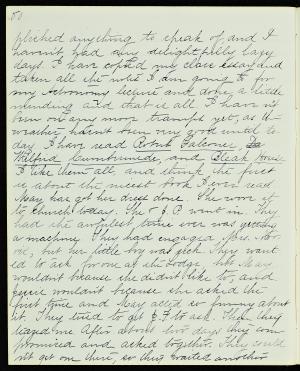 50
plished anything to speak of and I
haven't had any delightfully lazy
days. I have copied my class essay and
taken all the notes I am going to for
my Astronomy lecture and done a little
mending and that is all. I haven't
been on any more tramps yet, as the
weather hasn't been very good until to
day. I have read Robert Falconer,
Wilfrid Cumbermede, and Bleak House
I like them all, and think the first
is about the nicest book I ever read
May has got her dress done. She wore it
to church today. She & P. went in. They
had the awfulest time over was getting
a machine. They had engaged Mrs.
but her little boy was sick. They want
ed to ask for one at the Lodge. But May
wouldn't because she didn't like to, and
wouldn't because she asked the
first time and May acted so funny about
it. They tried to get to ask. Then they
teased me. After about two days they com
promised and asked together. They could
not get one there, so they waited another